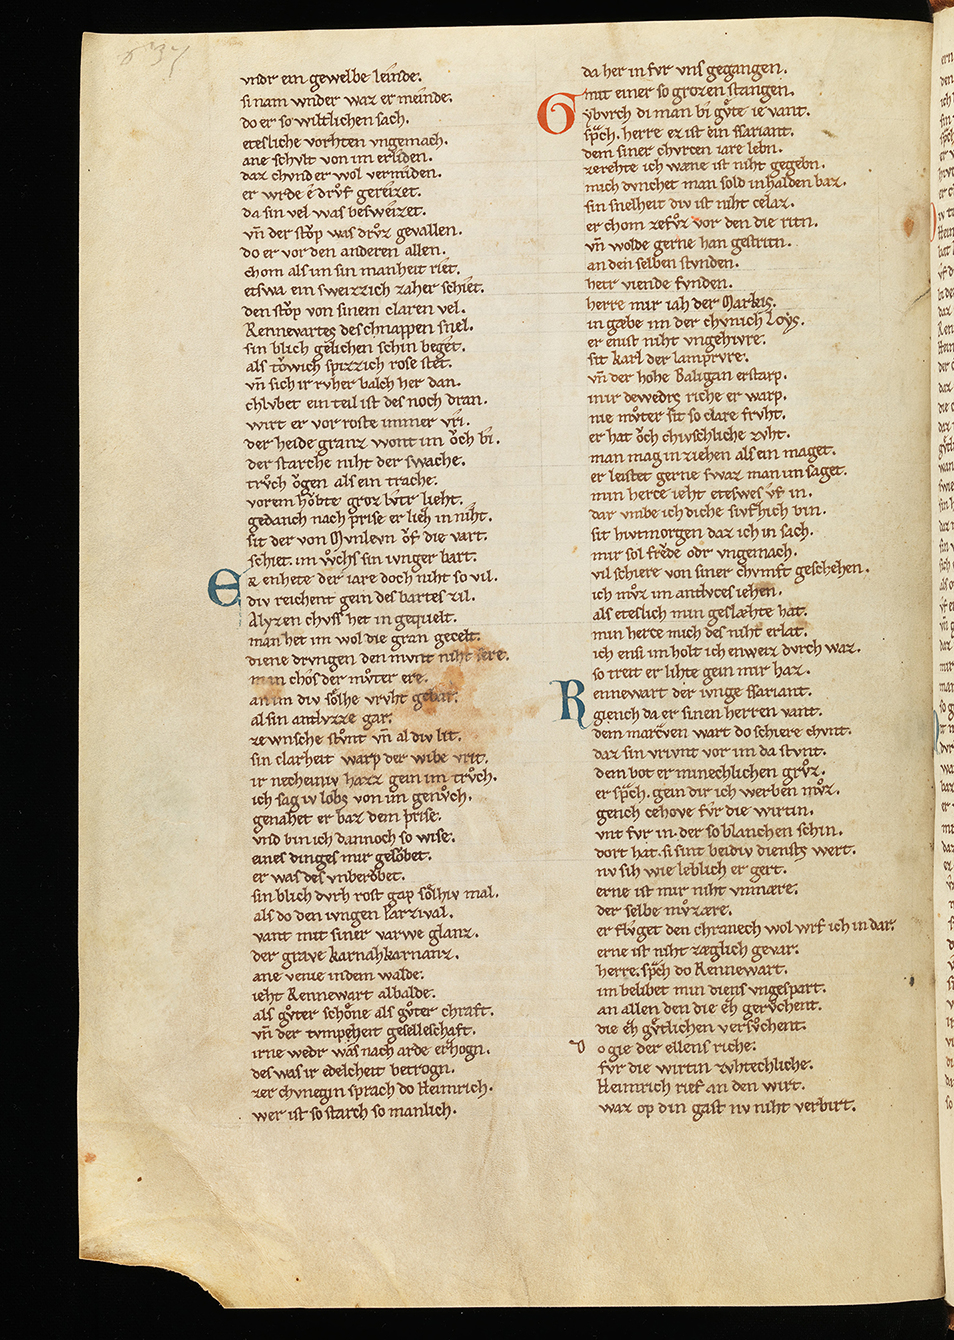 vndr ein gewelbe leinde.
si nam wnder waz er meinde.
do er so wiltlichen sach.
etesliche vorhten vngemach.
ane schvlt von im erliden.
daz chvnd er wol vermiden.
er wrde e drvf gereizet.
da sin vel was besweizet.
vn̄ der stǒp was drvͦz gevallen.
do er vor den anderen allen.
chom als im sin manheit riet.
etswa ein sweizzich zaher schiet.
den stǒp von sinem claren vel.
Rennewartes des chnappen snel.
sin blich gelichen schin beget.
als tǒwich spizzich rose stet.
vn̄ sich ir rvher balch her dan.
chlvbet ein teil ist des noch dran.
wirt er vor roste immer vri.
der heide glanz wont im ǒch bi.
der starche niht der swache.
trvͦch ǒgen als ein trache.
vorem hǒbte groz lvter lieht.
gedanch nach prise er lieh in niht.
sit der von Mvnlevn vf die vart.
schiet. im wͦchs sin ivnger bart.
Ez enhete der iare doch niht so vil.
div reichent gein des bartes zil.
Alyzen chvss het in gequelt.
man het im wol die gran gecelt.
diene drvngen den mvnt niht sere.
man chos der mvͦter ere.
an im div sǒlhe vrvht gebar.
al sin antlvzze gar.
ze wnsche stvͦnt vn̄ al div lit.
sin clarheit warp der wibe vrit.
ir necheiniv hazz gein im trvͦch.
ich sag iv lobs von im genvͦch.
genahet er baz dem prise.
vnd bin ich dannoch so wise.
eines dinges mir gelǒbet.
er was des vnberǒbet.
sin blich dvrh rost gap sǒlhiv mal.
als do den ivngen Parzival.
vant mit siner varwe glanz.
der grave karnahkarnanz.
ane venie in dem walde.
ieht Rennewart al balde.
als gvͦter schǒne als gvͦter chraft.
vn̄ der tvmpheit geselleschaft.
irne wedr was nach arde erhogn.
des was ir edelcheit betrogn.
zer chvnegin sprach do Heimrich.
wer ist so starch so manlich.
da her in fvr vns gegangen.
mit einer so grozen stangen.
Gybvrch di man bi gvͦte ie vant.
sp̄ch. herre ez ist ein ssariant.
dem siner chvrcen iare lebn.
zerehte ich wæne ist niht gegebn.
mich dvnchet man sold in halden baz.
sin snelheit div ist niht celaz.
er chom zefvͦz vor den die ritn.
vn̄ wolde gerne han gestritn.
an den selben stvnden.
hetr viende fvnden.
herre mir iah der Markis.
in gæbe im der chvnich Loys.
er enist niht vngehivre.
sit karl der lampvre.
vn̄ der hohe Baligan erstarp.
mir dewedrs riche er warp.
nie mvͦter sit so clare frvht.
er hat ǒch chivschliche zvht.
man mag in ziehen als ein maget.
er leistet gerne swaz man im saget.
min herce ieht eteswes vf in.
dar vmbe ich diche sivfhich bin.
sit hivtmorgen daz ich in sach.
mir sol frǒde odr vngemach.
vil schiere von siner chvnft geschehen.
ich mvͦz im antlvces iehen.
als eteslich min geslæhte hat.
min herce mich des niht erlat.
ich ensi im holt ich enweiz dvrch waz.
so treit er lihte gein mir haz.
Rennewart der ivnge ssariant.
giench da er sinen herren vant.
dem marcven wart do schiere chvnt.
daz sin vrivnt vor im da stvnt.
dem bot er minechlichen grvͦz.
er sp̄ch. gein dir ich werben mvͦz.
gench cehove fvr die wirtin.
vnt fvr in. der so blanchen schin.
dort hat. si sint beidiv diensts wert.
nv sih wie leblich er gert.
erne ist mir niht vnmære.
der selbe mvͦzære.
er flvget den chranech wol wrf ich in dar.
erne ist niht zæglich gevar.
herre. sp̄ch do Rennewart.
im belibet min diens vngespart.
an allen den die ẽh gervͦchent.
die ẽh gvͦtlichen versvͦchent.
Do gie der ellens riche.
fvr die wirtin zvhtechliche.
Heimrich rief an den wirt.
waz op din gast nv niht verbirt.